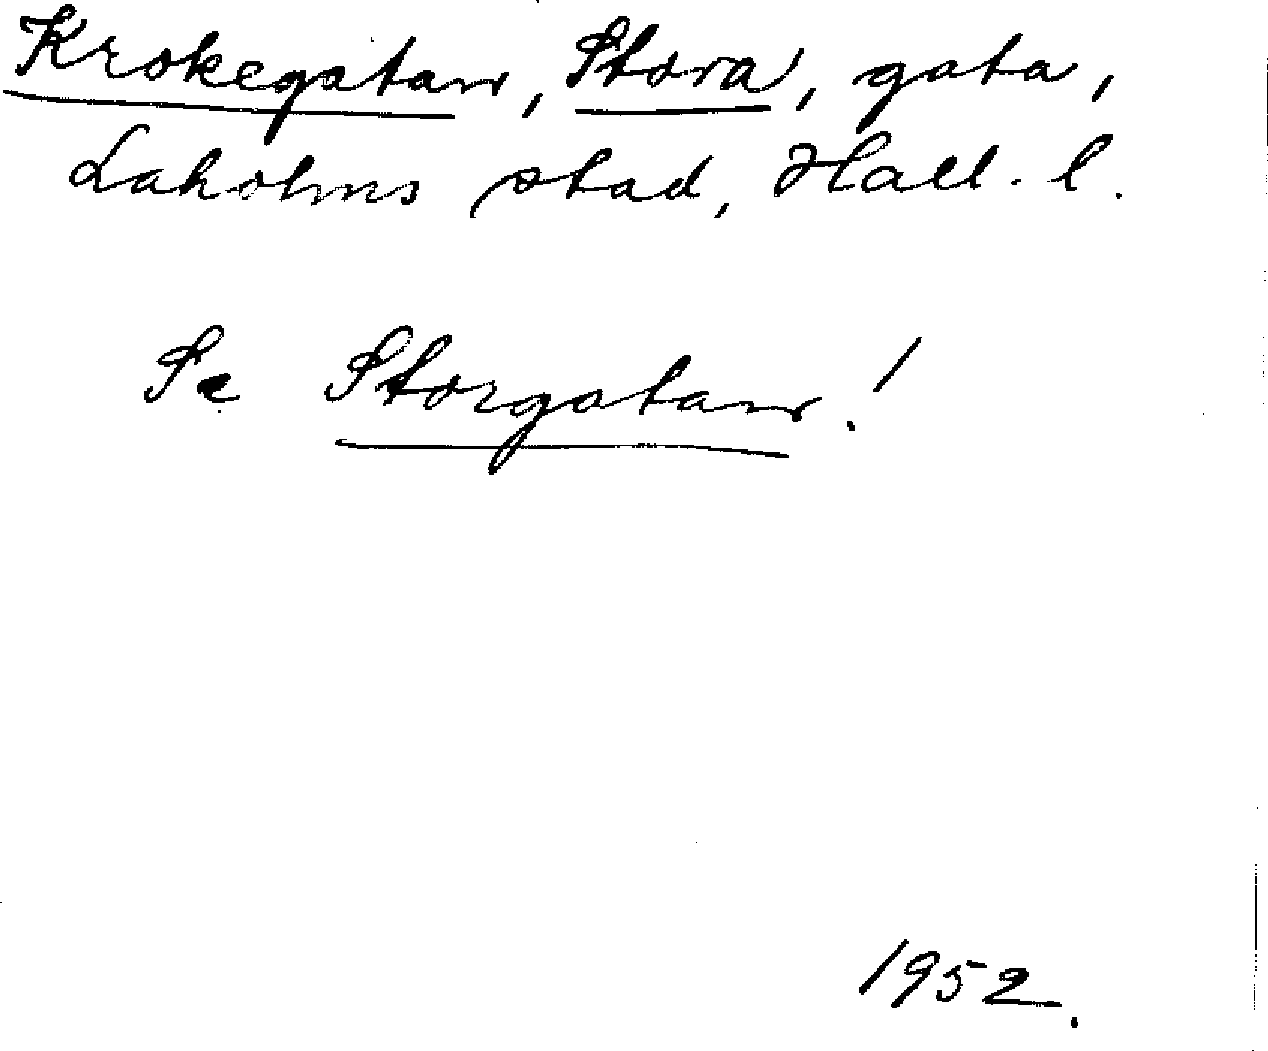 Krokegatan, Stora, gata,
Laholms stad, Hall. l.
Se Storgatan!
1952.